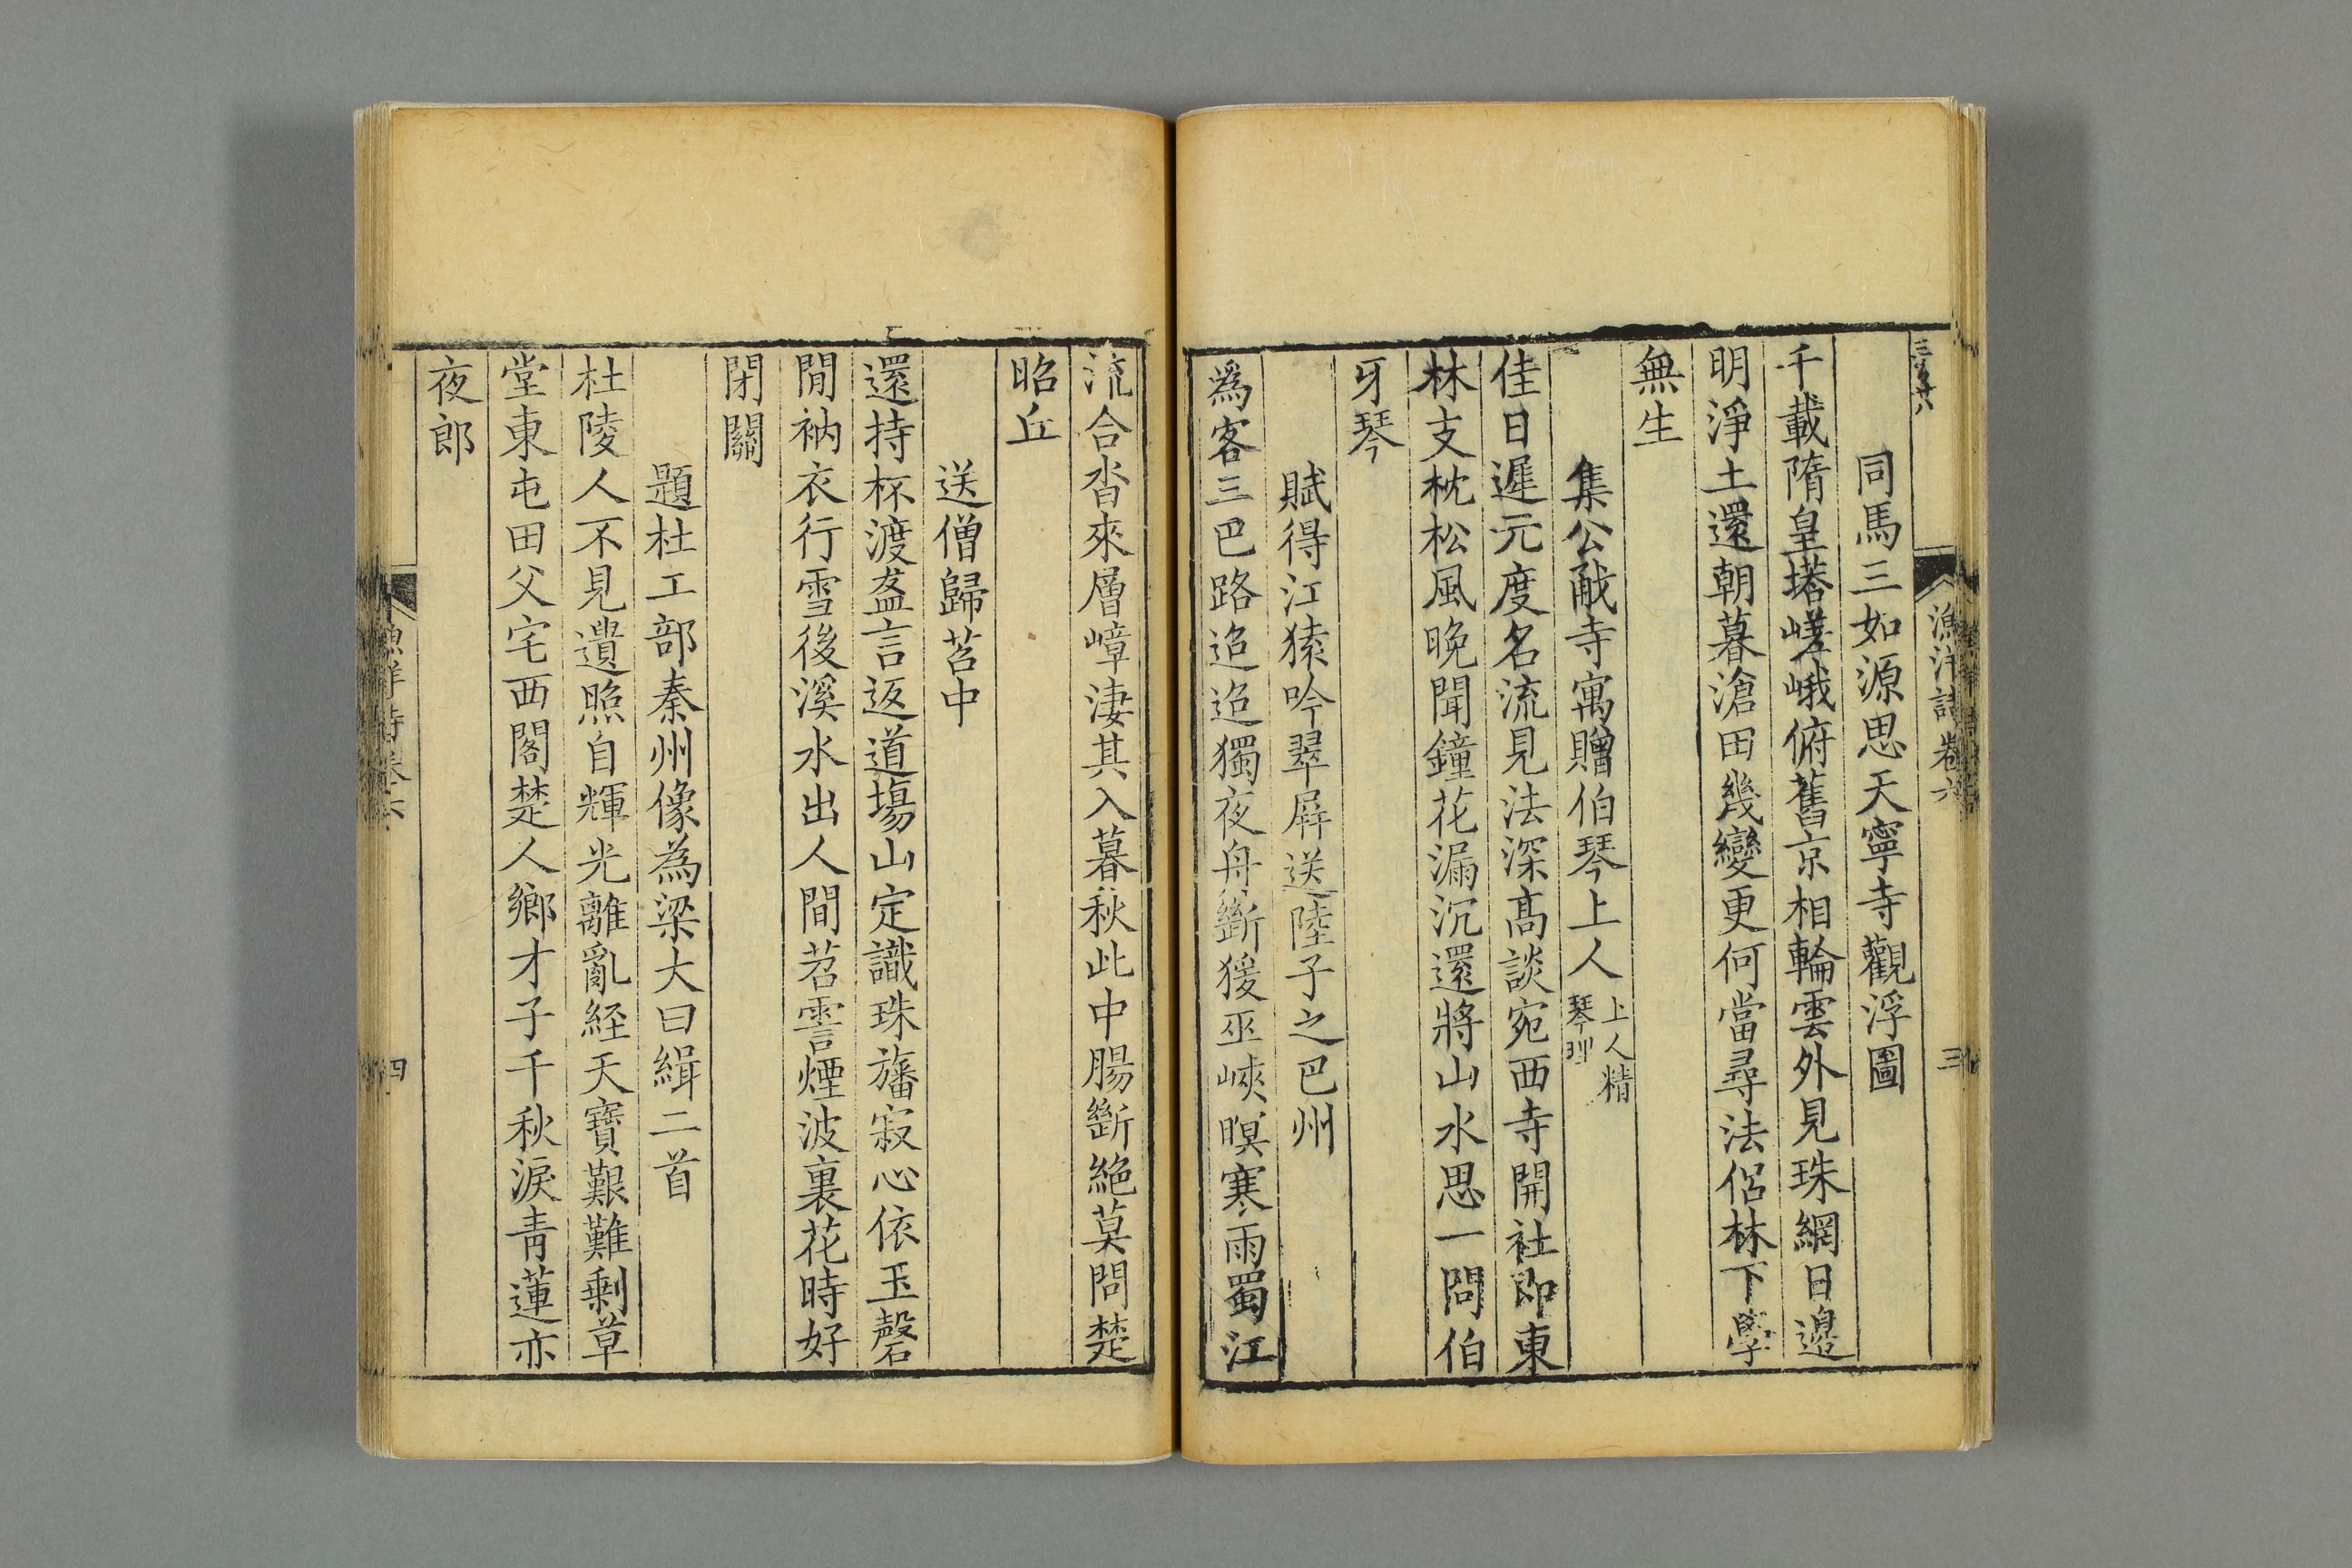 三百廿八
漁洋詩卷六
三
同馬三如源思天寧寺觀浮圖
千載隋皇塔嵯峨俯舊京相輪雲外見珠網日邊
明淨土還朝暮滄田幾變更何當尋法侶林下學
無生
集公㦸寺寓贈伯琴上人上人精琴理
佳日遲元度名流見法深髙談宛西寺開社即東
林支枕松風晚聞鐘花漏沉還將山水思一問伯
牙琴
賦得江猿吟翠屛送陸子之巴州
爲客三巴路迢迢獨夜舟斷猨巫峽暝寒雨蜀江
流合沓來層嶂淒其入暮秋此中腸斷絶莫問楚
昭丘
送僧歸苕中
還持杯渡盋言返道塲山定識珠旛寂心依玉磬
閒衲衣行雪後溪水出人間苕霅煙波裏花時好
閉關
題杜工部秦州像為梁大曰緝二首
杜陵人不見遺照自輝光離亂経天寶艱難剩草
堂東屯田父宅西閣楚人鄉才子千秋淚青蓮亦
夜郎
漁洋詩卷六
四